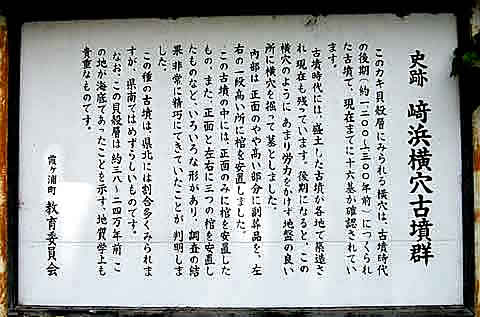 史跡 崎浜横穴古墳群
このカキ貝殻層にみられる横穴は、古墳時代
の後期(約一、二〇〇〜一、三〇〇年前)につくられ
た古墳で、現在までに十六基が確認されてい
ます。
古墳時代には、盛土した古墳が各地で築造さ
れ、現在も残っています。後期になると、この
横穴のように あまり労力をかけず地盤の良い
所に横穴を掘って墓としました。
内部は、正面のやや高い部分に副葬品を、左
右の一段高い所に棺を安置しました。
この古墳の中には、正面のみに棺を安置した
もの、また、正面と左右に三つの棺を安置し
たものなど、いろいろな形があり、調査の結
果非常に精巧にできていたことが 判明しま
した。
この種の古墳は、県北には割合多くみられま
すが、県南ではめずらしいものです。
なお、この貝殻層は約三八〜二四万年前、こ
の地が海底であったことを示す、地質学上も
貴重なものです。
霞ヶ浦町 教育委員会